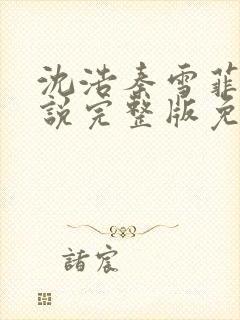 沈浩秦雪菲
说完整版免
諸宸